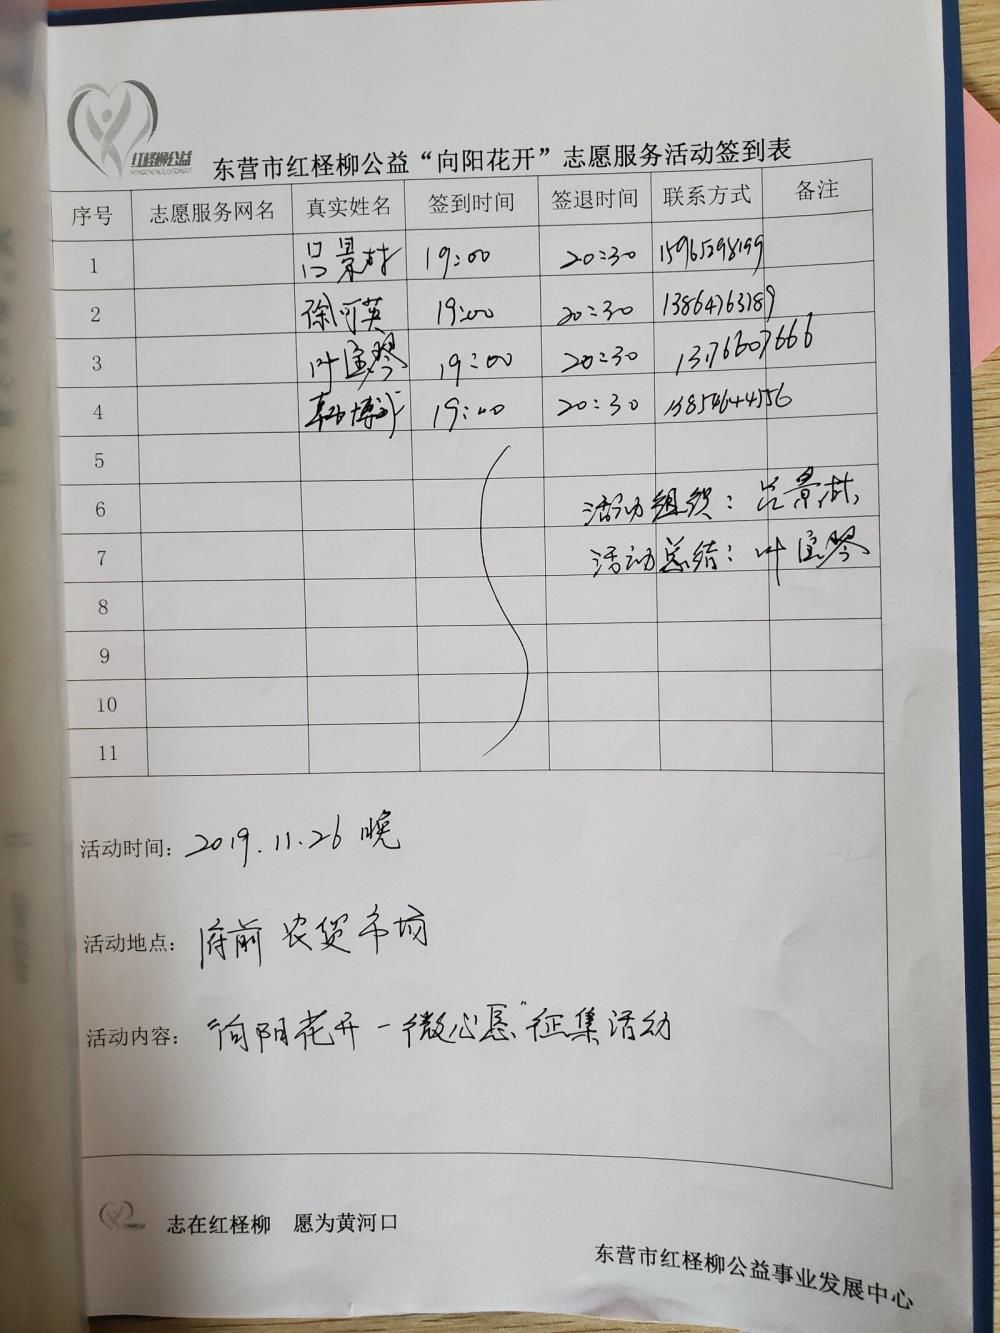 红柽柳公益
东营市红柽柳公益“向阳花开”志愿服务活动签到表
序号 志愿服务网名 真实姓名 签到时间 签退时间 联系方式 备注
1 吕景村 19:00 20:30 15965298199
2 徐可英 19:00 20:30 13864763789
3 叶宝琴 19:00 20:30 13176607666
4 博 19:00 20:30 13854644556
5
6 活动组织: 吕景村
7 活动总结: 叶宝琴
8
9
10
11
活动时间: 2019.11.26 晚
活动地点: 府前农贸市场
活动内容: “向阳花开-微心愿”征集活动
志在红柽柳 愿为黄河口
东营市红柽柳公益事业发展中心